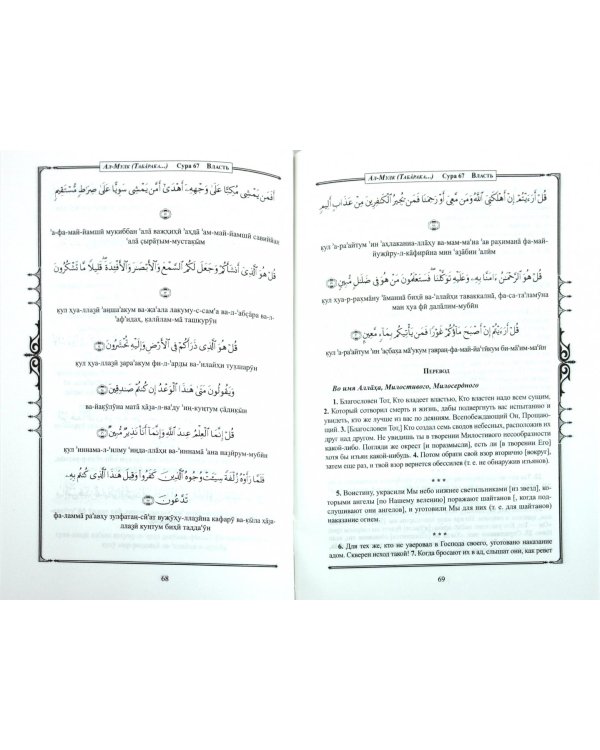 Ал-Мулк (Табāрака...) Сура 67 Власть
أَفَمَن يَمْشِى مُكِبًّا عَلَىٰ وَجْهِهِۦٓ أَهْدَىٰٓ أَمَّن يَمْشِى سَوِيًّا عَلَىٰ صِرَٰطٍ مُّسْتَقِيمٍ
'а-фа-май-йамшӣ мукиббан 'алā важҳиҳӣ 'аҳдā 'ам-май-йамшӣ саваййан
'алā çырāтым-мустақӣм
قُلْ هُوَ ٱلَّذِىٓ أَنشَأَكُمْ وَجَعَلَ لَكُمُ ٱلسَّمْعَ وَٱلْأَبْصَٰرَ وَٱلْأَفْـِٔدَةَ ۖ قَلِيلًا مَّا تَشْكُرُونَ
кул ҳуа-ллазӣ 'анша'акум ва-жа'ала лакуму-с-сам'а ва-л-'абçāра ва-л-
'аф'идах, қалӣлам-мā ташкурӯн
قُلْ هُوَ ٱلَّذِى ذَرَأَكُمْ فِى ٱلْأَرْضِ وَإِلَيْهِ تُحْشَرُونَ
кул ҳуа-ллазӣ зара'акум фи-л-'арды ва-'илайҳи туҳшарӯн
وَيَقُولُونَ مَتَىٰ هَٰذَا ٱلْوَعْدُ إِن كُنتُمْ صَٰدِقِينَ
ва-йақӯлӯна матā ҳāза-л-ва'ду 'ин-кунтум çāдикӣн
قُلْ إِنَّمَا ٱلْعِلْمُ عِندَ ٱللَّهِ وَإِنَّمَآ أَنَا۠ نَذِيرٌ مُّبِينٌ
кул 'иннама-л-'илму 'инда-ллāҳи ва-'иннамā 'ана назӣрум-мубӣн
فَلَمَّا رَأَوْهُ زُلْفَةً سِيٓـَٔتْ وُجُوهُ ٱلَّذِينَ كَفَرُوا۟ وَقِيلَ هَٰذَا ٱلَّذِى كُنتُم بِهِۦ
تَدَّعُونَ
фа-ламмā ра'авҳу зулфатан-сӣ'ат вужӯҳу-ллазӣна кафарӯ ва-қӣла ҳāза-
ллазӣ кунтум биҳӣ тадда'ӯн
68
Ал-Мулк (Табāрака...) Сура 67 Власть
قُلْ أَرَءَيْتُمْ إِنْ أَهْلَكَنِىَ ٱللَّهُ وَمَن مَّعِىَ أَوْ رَحِمَنَا فَمَن يُجِيرُ ٱلْكَٰفِرِينَ مِنْ عَذَابٍ أَلِيمٍ
кул 'а-ра'айтум 'ин 'аҳлаканиа-ллāҳу ва-мам-ма'иа 'ав раҳиманā фа-май-
йужӣру-л-кāфирӣна мин 'азāбин 'алӣм
قُلْ هُوَ ٱلرَّحْمَٰنُ ءَامَنَّا بِهِۦ وَعَلَيْهِ تَوَكَّلْنَا ۖ فَسَتَعْلَمُونَ مَنْ هُوَ فِى ضَلَٰلٍ مُّبِينٍ
кул ҳуа-р-раҳмāну 'āманнā биҳӣ ва-'алайҳи таваккалнā, фа-са-та'ламӯна
ман ҳуа фӣ далāлим-мубӣн
قُلْ أَرَءَيْتُمْ إِنْ أَصْبَحَ مَآؤُكُمْ غَوْرًا فَمَن يَأْتِيكُم بِمَآءٍ مَّعِينٍۭ
кул 'а-ра'айтум 'ин 'аçбаҳа мā'укум ғавран-фа-май-йа'тӣкум би-мā'им-ма'ӣн
Перевод
Во имя Аллāҳа, Милостивого, Милосердного
1. Благословен Тот, Кто владеет властью, Кто властен надо всем сущим,
2. Который сотворил смерть и жизнь, дабы подвергнуть вас испытанию и
увидеть, кто же лучше из вас по деяниям. Всепобеждающий Он, Прощаю-
щий. 3. [Благословен Тот,] Кто создал семь сводов небесных, расположив их
друг над другом. Не увидишь ты в творении Милостивого несообразности
какой-либо. Погляди же окрест [и поразмысли], есть ли [в творении Его]
хотя бы изъян какой-нибудь. 4. Потом обрати свой взор вторично [вокруг],
затем еще раз, и твой взор вернется обессилев (т. е. не обнаружив изъянов).
* * *
5. Воистину, украсили Мы небо нижнее светильниками [из звезд], ко-
торыми ангелы [по Нашему велению] поражают шайтанов [, когда под-
слушивают они ангелов], и уготовили Мы для них (т. е. для шайтанов)
наказание огнем.
* * *
6. Для тех же, кто не уверовал в Господа своего, уготовано наказание
адом. Скверен исход такой! 7. Когда бросают их в ад, слышат они, как ревет
69